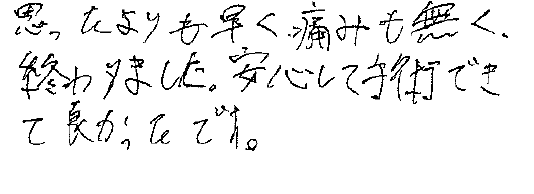 思ったよりも早く、痛みも無く、
終わりました。安心して手術でき
て良かったです。